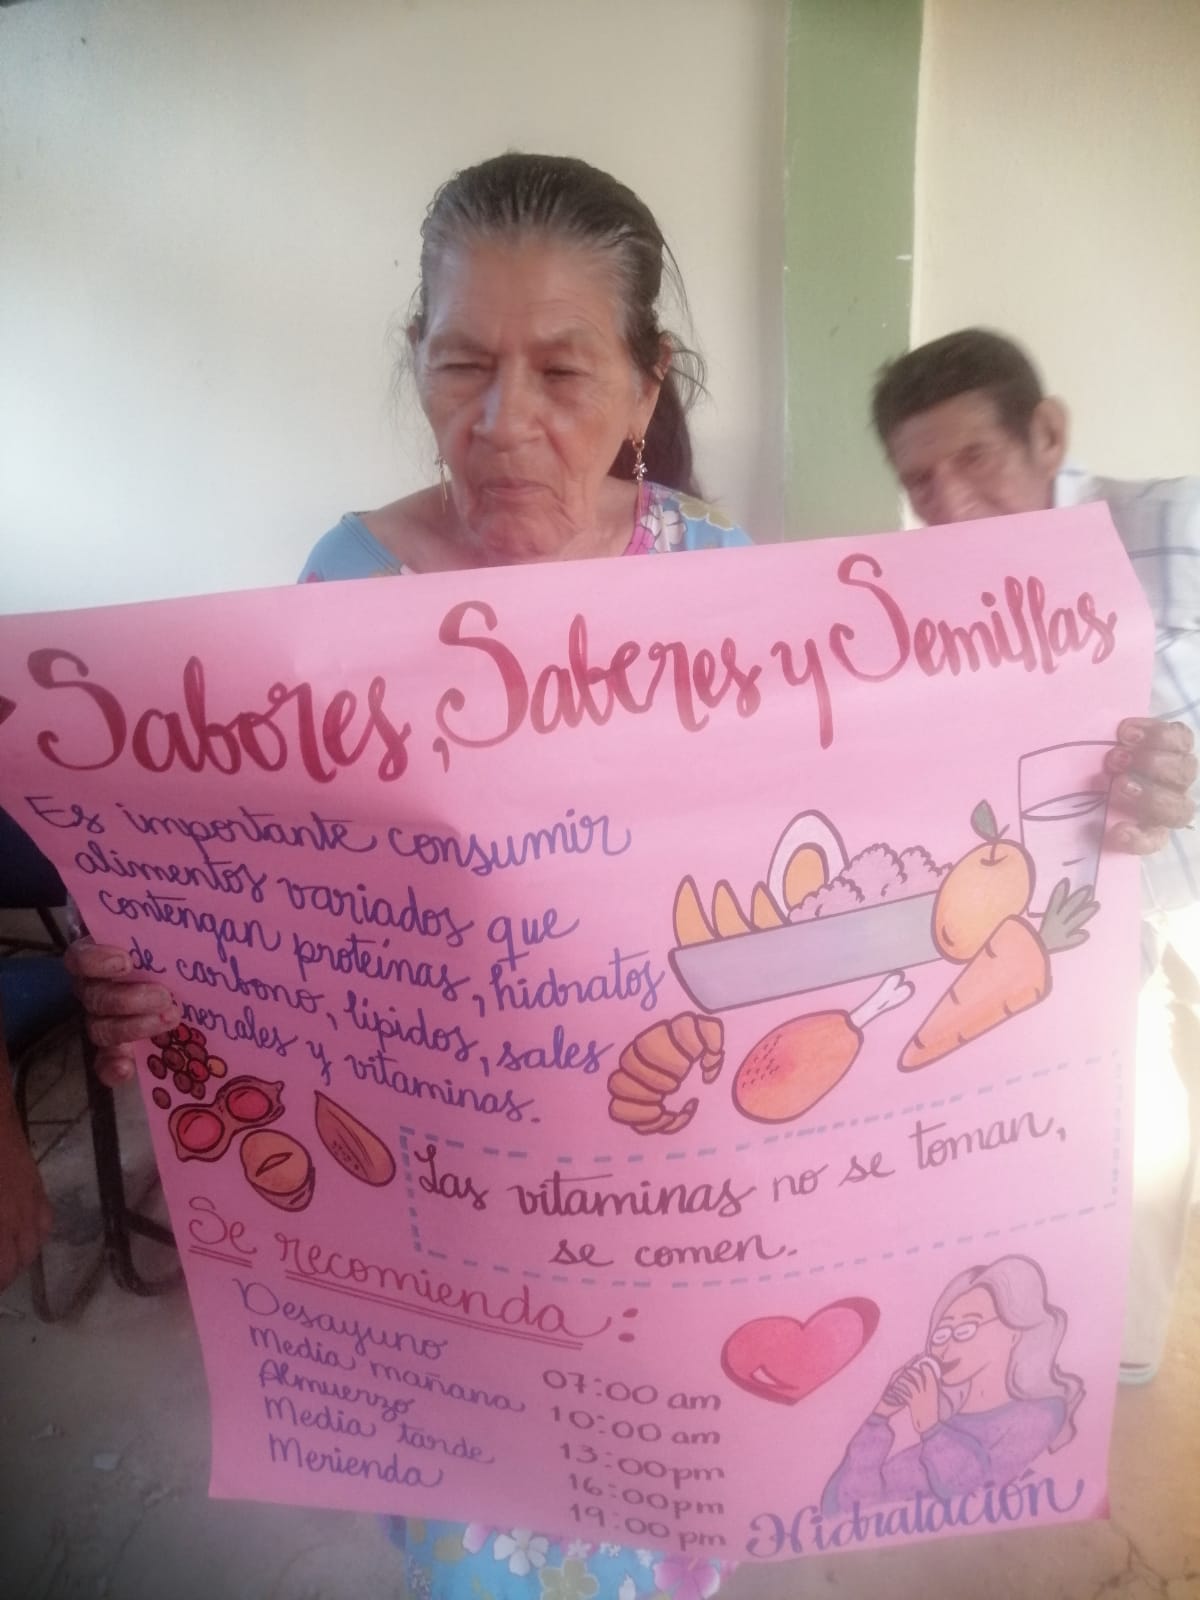 Sabores, Saberes y Semillas
Es importante consumir
alimentos variados que
contengan proteínas, hidratos
de carbono, lípidos, sales
nerales y vitaminas.
Las vitaminas no se toman,
se comen.
Se recomienda:
Desayuno 07:00 am
Media mañana 10:00 am
Almuerzo 13:00 pm
Media tarde 16:00 pm
Merienda 19:00 pm
Hidratación